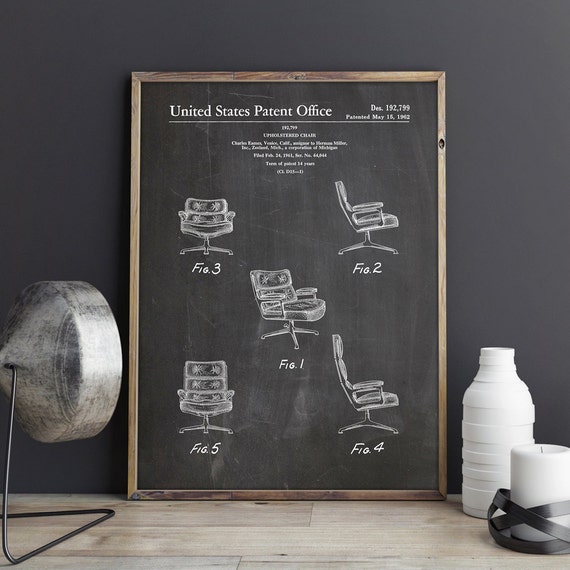 United States Patent Office
Des. 192,799
Patented May 15, 1962
192,799
UPHOLSTERED CHAIR
Charles Eames, Venice, Calif., assignor to Herman Miller,
Inc., Zeeland, Mich., a corporation of Michigan
Filed Feb. 24, 1961, Ser. No. 64,044
Term of patent 14 years
(Cl. D15—1)
FIG. 3
FIG. 2
FIG. 1
FIG. 5
FIG. 4